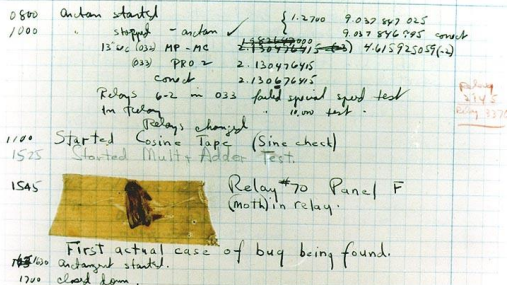 0800 arctan started
1000 " stopped - arctan ✓ { 1.2700 9.037 847 025
9.037 846 995 correct
13"uc (032) MP - MC 2.130476415 4.615925059(-2)
(033) PRO 2 2.130476415
correct 2.130676415
Relays 6-2 in 033 failed special speed test
In Relay " 11.000 test.
Relay
3370
Relays changed
1100 Started Cosine Tape (Sine check)
1525 Started Mult + Adder Test.
1545 Relay #70 Panel F
(moth) in relay.
First actual case of bug being found.
1630 arctangent started.
1700 closed down.